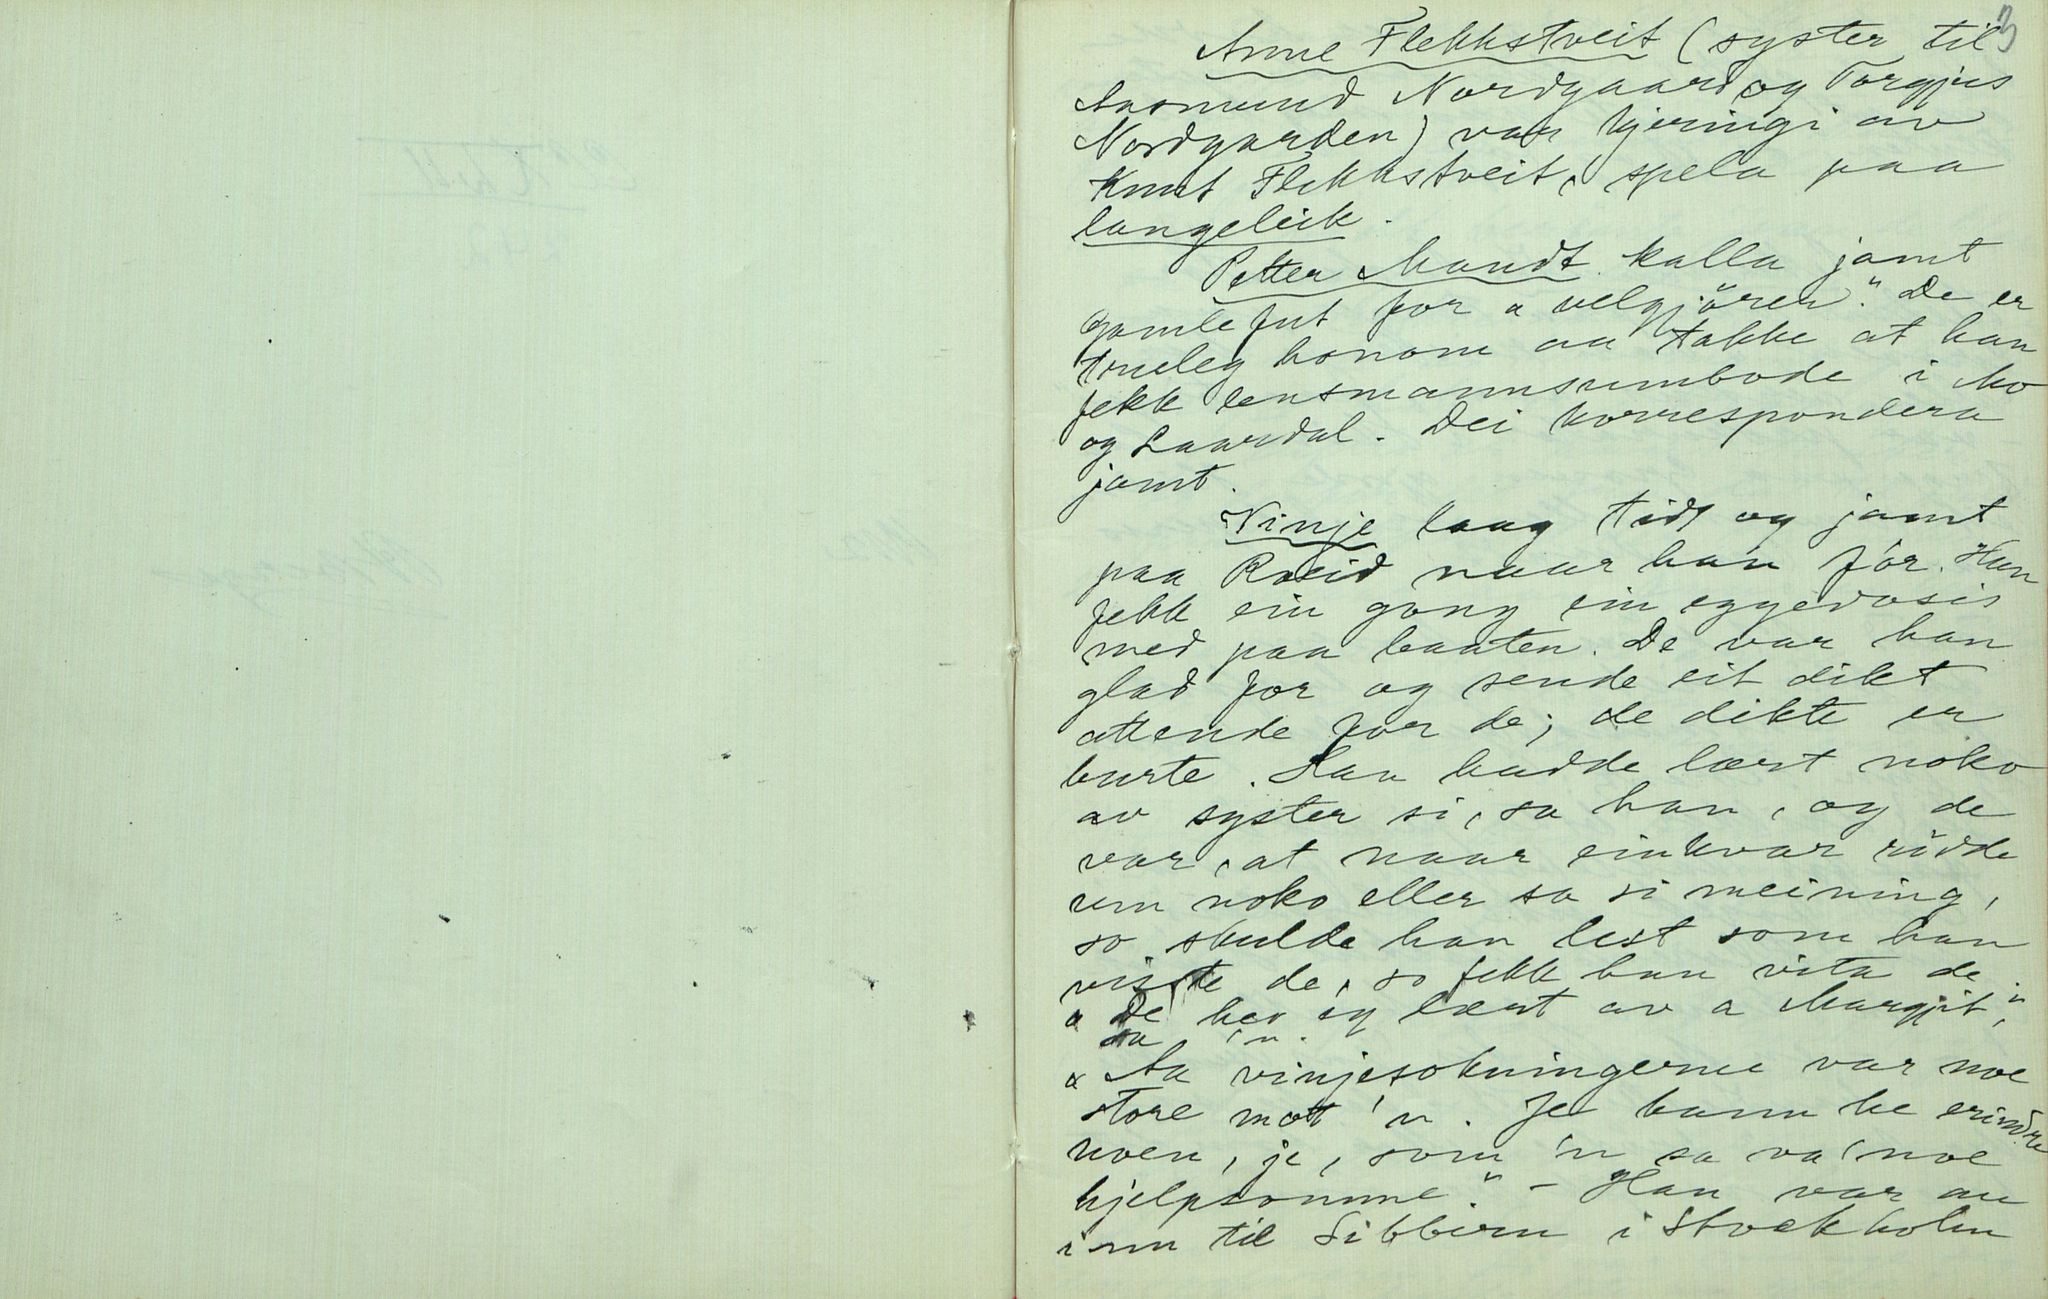 3
Anne Flekkstveit (syster til
Aasmund Nordgaard og Torgjus
Nordgarden) var kjeringi av
Knut Flekkstveit, spela paa
langeleik.
Petter Mandt kalla jamt
gamlefut for "velgjören". De er
truleg honom aa takke at han
fekk lensmannsumbode i Mo
og Laardal. Dei korrespondera
jamt.
Vinje laag tidt og jamt
paa Roeid naar han för. Han
fekk ein gong ein eggedosis
med paa baaten. De var han
glad for og sende eit dikt
attende for de; de dikte er
burte. Han hadde lært noko
av syster si, sa han, og de
var, at naar einkvar rödde
um noko eller sa si meining,
so skulde han lest som han
visste de, so fekk han vita de.
"De hev eg lært av a Margjit",
sa 'n.
"Aa vinjesokningerne var noe
store mott 'n. Je kann ke erindre
noen, je, som 'n sa va' noe
hjelpsomme". - Han var au
inn til Sibbern i Stockholm